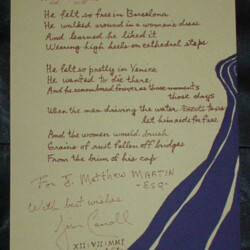 He felt so free in Barcelona
He walked around in a woman's dress
And learned he liked it
Wearing high heels on cathedral steps
He felt so pretty in Venice
He wanted to die there
And be remembered forever as those moments
those days
When the men driving the water taxis
let him ride for free
And the women would brush
Grains of rust fallen off bridges
From the brim of his cap
For J. Matthew MARTIN
-ESQ-
With best wishes
Jim Carroll
XII:VII:MMI